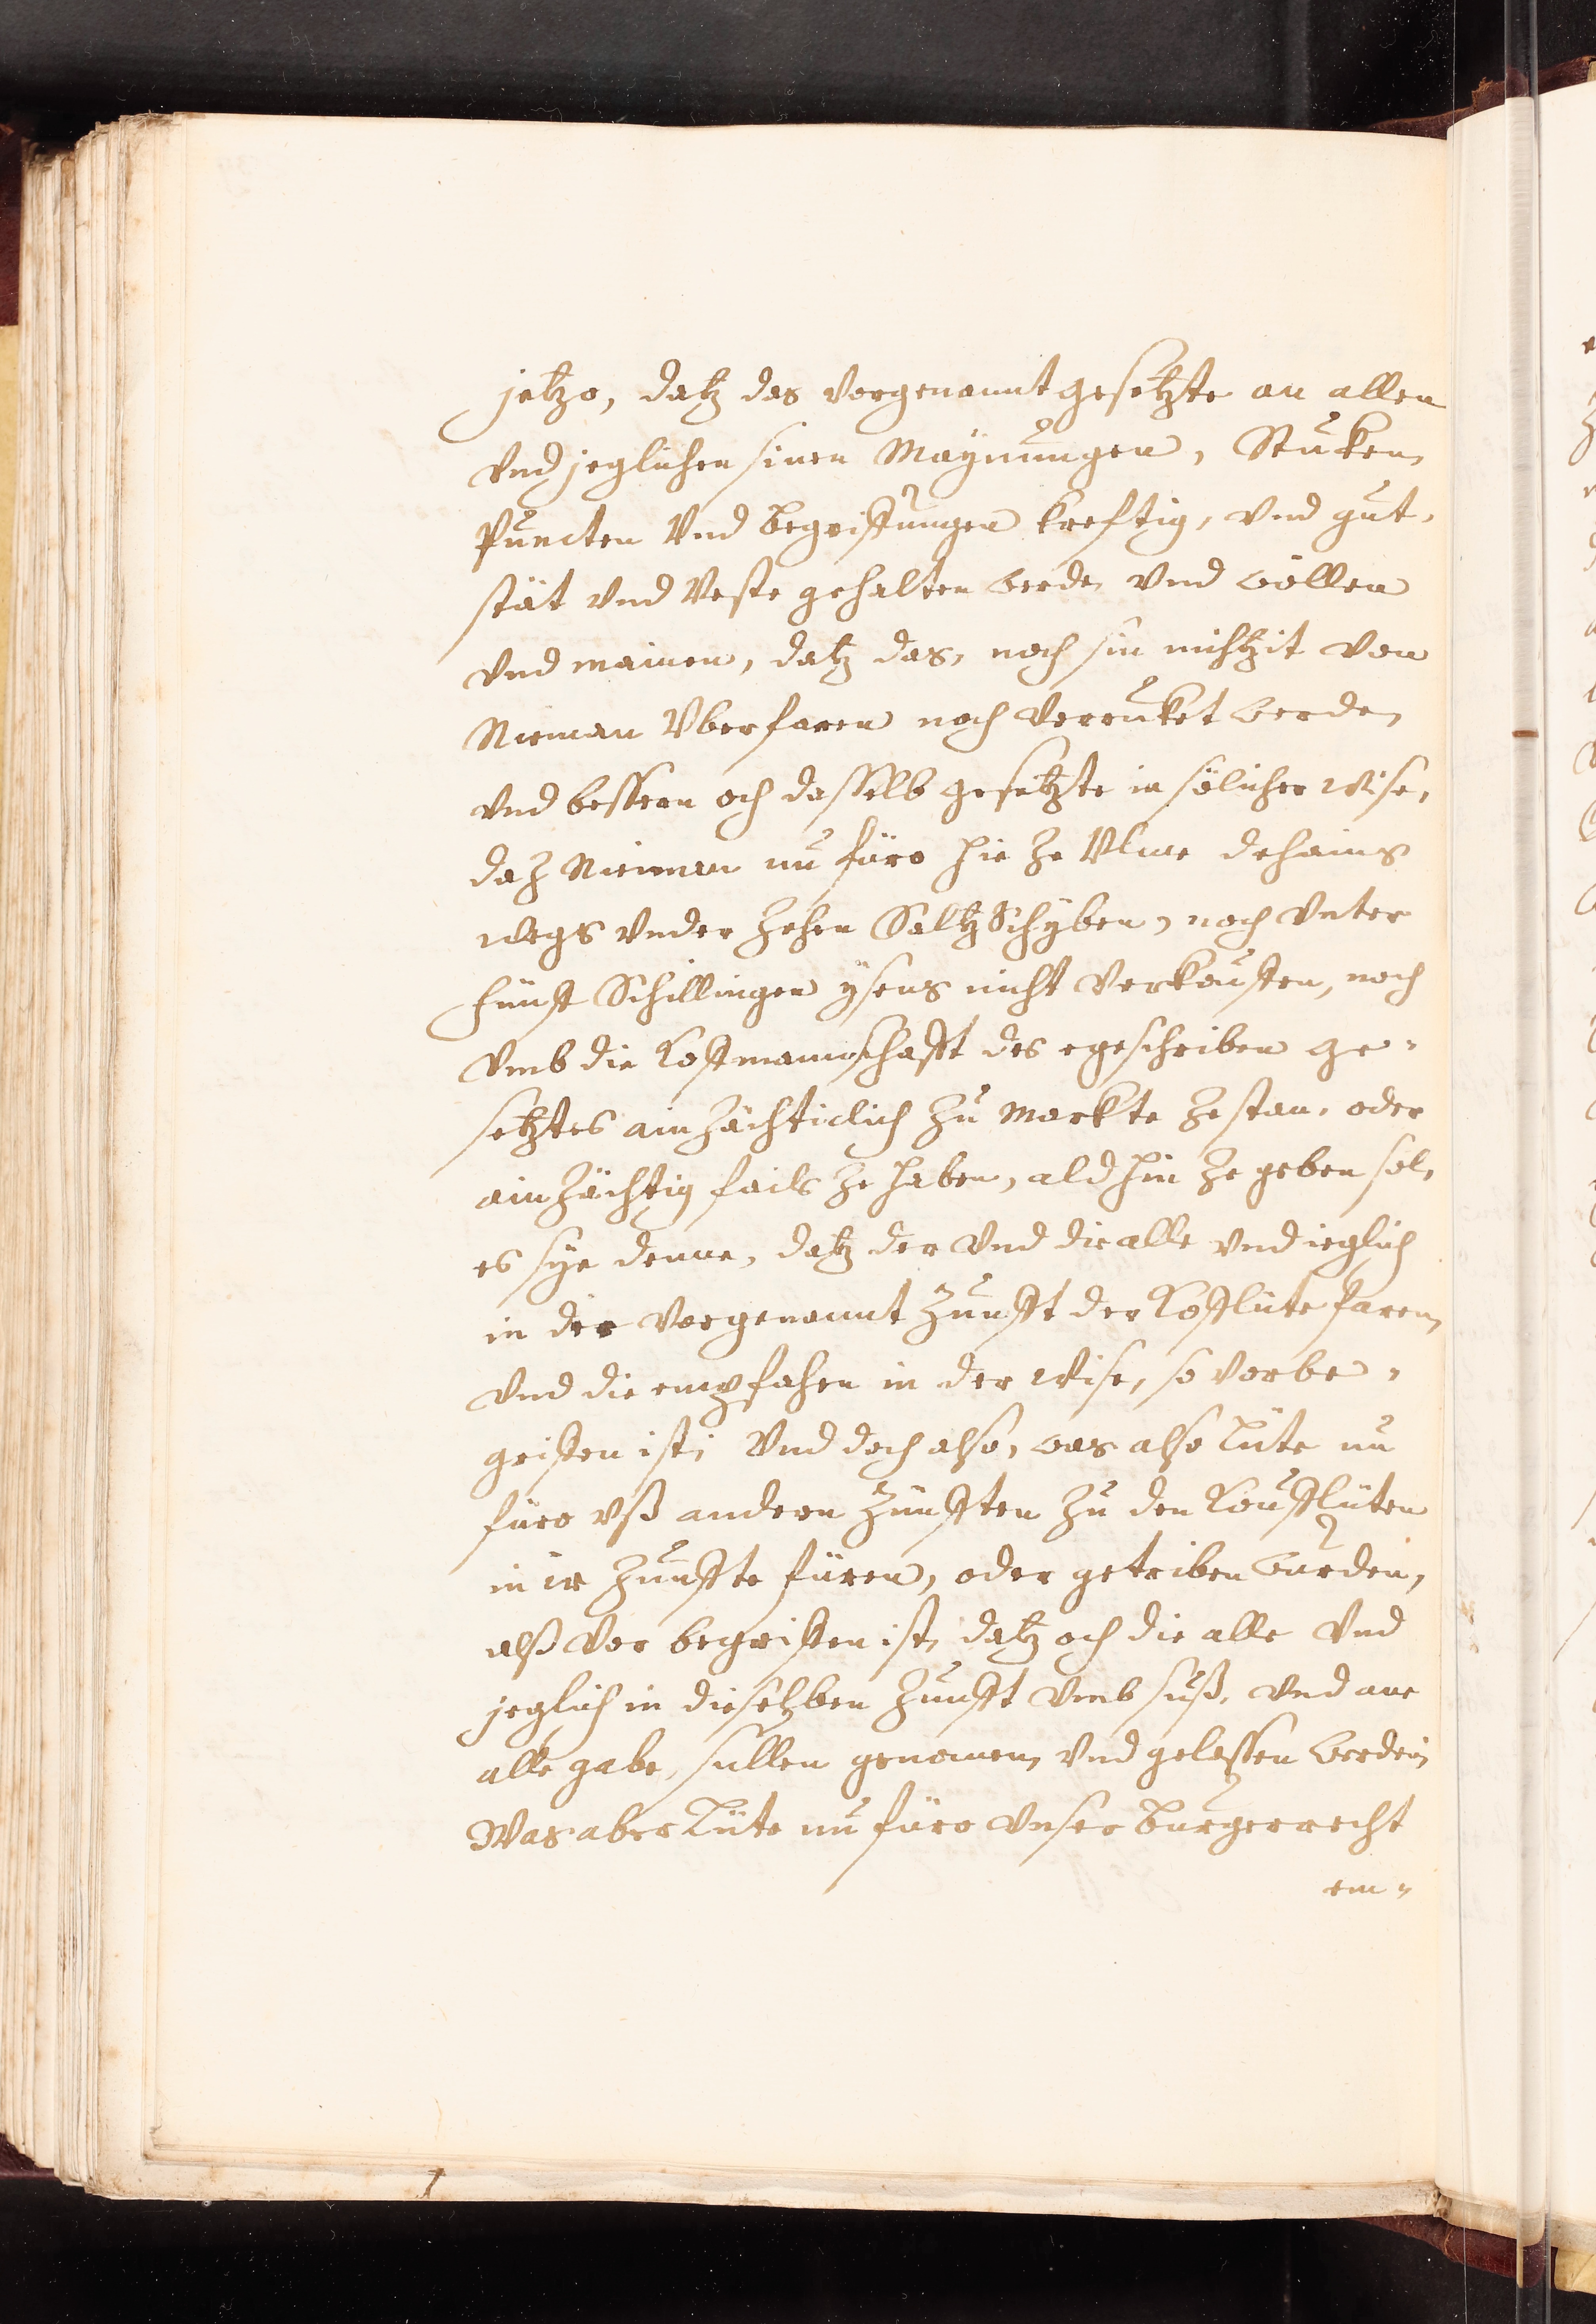 jetzo, datz das vorgenannt gesetzte an allen
vnd jeglichen sinen Maynungen, Stuken,
Puncten Vnd begriffungen kreftig, vnd gut,
stät vnd Veste gehalten werde, vnd wöllen
vnd mainen, datz das, noch sin nichtzit von
Nieman Vberfaren noch verruket werde,
vnd bessern och dasselb gesetzte in sölicher wise,
daz Nieman nu füro hie ze Vlme dehains
wegs vnder zehen Saltz Schyben, noch vnter
fünff Schillingen ysens nicht verkouffen, noch
vmb die Koffmannschafft des egeschriben ge-
setztes ainzächticlich zu Markte ze stan, oder
ainzächtig fails ze haben, ald hin ze geben sol,
es sye denne, datz der vnd die alle vnd ieglich
in der vorgenannt Zunfft der Kofflüte faren,
vnd die empfahen in der wise, so vorbe-
griffen ist; Vnd doch also, was also Lüte nu
füro vß andern Zünfften zu den Koufflüten
in ir Zunffte füren, oder getriben wurden,
alß vor begriffen ist, datz och die alle vnd
jeglich in dieselben Zunfft vmb suß, vnd ane
alle gabe, sullen genomen, vnd gelassen werden,
Was aber Lüte nu füro vnser burgerrecht
em-